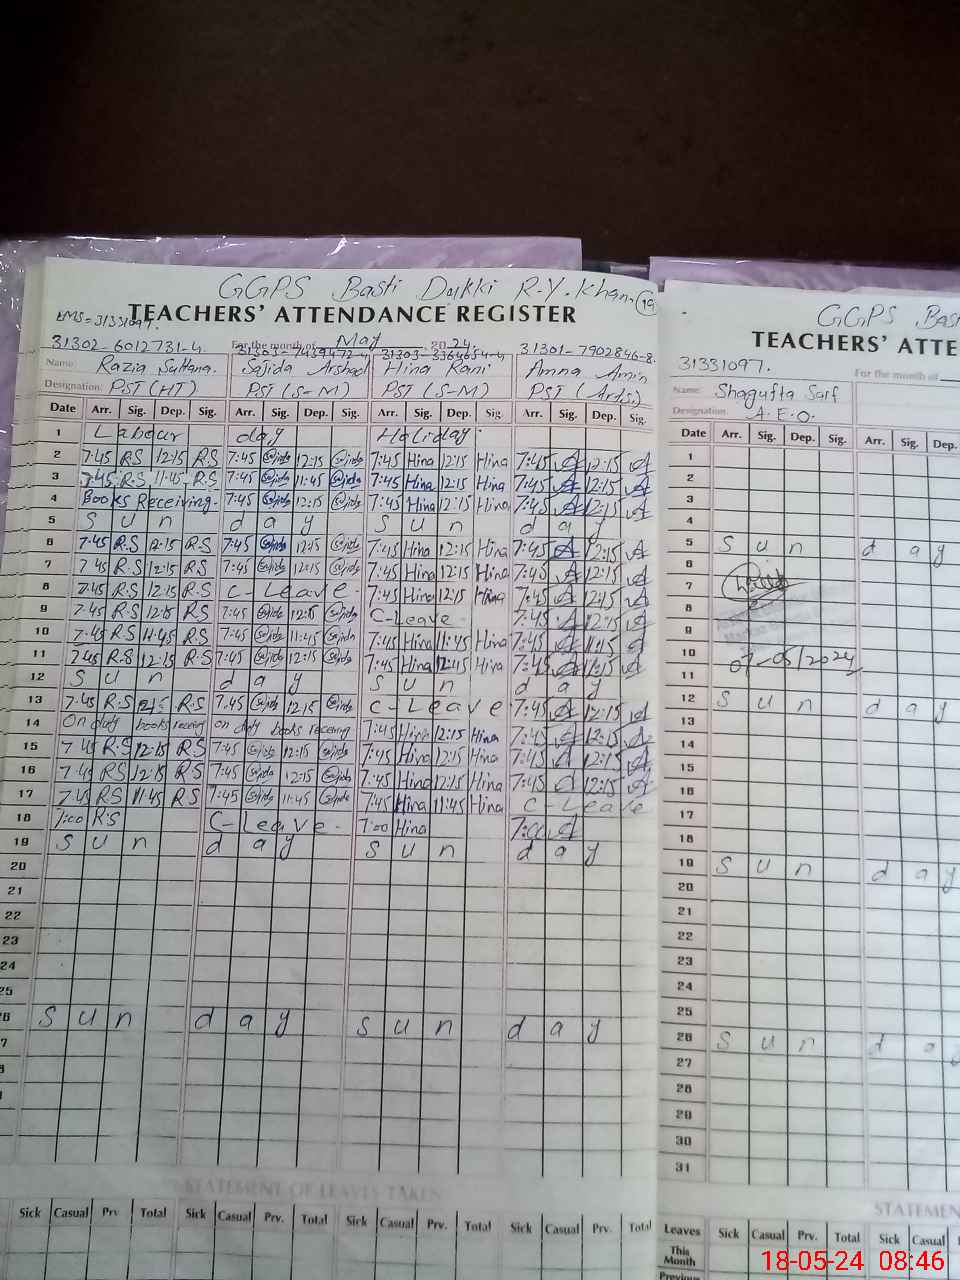 GGPS Basti Dukki R.Y.Khan. 19
EMS=31331097.
TEACHERS' ATTENDANCE REGISTER
For the month of May 2024
31302-6012731-4. 31303-7439472-4 31303-3364654-4 31301-7902846-8.
Name: Razia Sultana. Sajida Arshad Hina Rani Amna Amin
Designation: PST (HT) PST (S-M) PST (S-M) PST (Arts.)
Date Arr. Sig. Dep. Sig. Arr. Sig. Dep. Sig. Arr. Sig. Dep. Sig Arr. Sig. Dep. Sig.
1 Labour day Holiday.
2 7:45 R.S 12:15 R.S 7:45 Sajida 12:15 Sajida 7:45 Hina 12:15 Hina 7:45 A 12:15 A
3 7:45 R.S 11:45 R.S 7:45 Sajida 11:45 Sajida 7:45 Hina 12:15 Hina 7:45 A 12:15 A
4 Books Receiving. 7:45 Sajida 12:15 Sajida 7:45 Hina 12:15 Hina 7:45 A 12:15 A
5 S u n d a y S u n d a y
6 7:45 R.S 12:15 R.S 7:45 Sajida 12:15 Sajida 7:45 Hina 12:15 Hina 7:45 A 12:15 A
7 7:45 R.S 12:15 R.S 7:45 Sajida 12:15 Sajida 7:45 Hina 12:15 Hina 7:45 A 12:15 A
8 7:45 R.S 12:15 R.S C-Leave. 7:45 Hina 12:15 Hina 7:45 A 12:15 A
9 7:45 R.S 12:15 R.S 7:45 Sajida 12:15 Sajida C-Leave. 7:45 A 12:15 A
10 7:45 R.S 11:45 R.S 7:45 Sajida 11:45 Sajida 7:45 Hina 11:45 Hina 7:45 A A
11 7:45 R.S 12:15 R.S 7:45 Sajida 12:15 Sajida 7:45 Hina 12:15 Hina 7:45 A A
12 S u n d a y S u n d a y
13 7:45 R.S R.S 7:45 Sajida 12:15 Sajida C-Leave 7:45 A 12:15 A
14 On duty books receiving on duty books receving 7:45 Hina 12:15 Hina 7:45 A 12:15 A
15 7:45 R.S 12:15 R.S 7:45 Sajida 12:15 Sajida 7:45 Hina 12:15 Hina 7:45 A 12:15 A
16 7:45 R.S 12:15 R.S 7:45 Sajida 12:15 Sajida 7:45 Hina 12:15 Hina 7:45 A 12:15 A
17 7:45 R.S 11:45 R.S 7:45 Sajida 11:45 Sajida 7:45 Hina 11:45 Hina C-Leave
18 7:00 R.S C-Leave. 7:00 Hina 7:00 A
19 S u n d a y S u n d a y
20
21
22
23
24
25
26 S u n d a y S u n d a y
STATEMENT OF LEAVES TAKEN
Sick Casual Prv. Total Sick Casual Prv. Total Sick Casual Prv. Total Sick Casual Prv. Total
GGPS Bas
TEACHERS' ATTE
31331097.
For the month of
Name: Shagufta Saif
Designation A.E.O.
Date Arr. Sig. Dep. Sig. Arr. Sig. Dep.
1
2
3
4
5 S u n d a y
6
7
8
9
10 07-05/2024
11
12 S u n d a y
13
14
15
16
17
18
19 S u n d a y
20
21
22
23
24
25
26 S u n d a
27
28
29
30
31
STATEMEN
Leaves Sick Casual Prv. Total Sick Casual
This Month
Previous
18-05-24 08:46